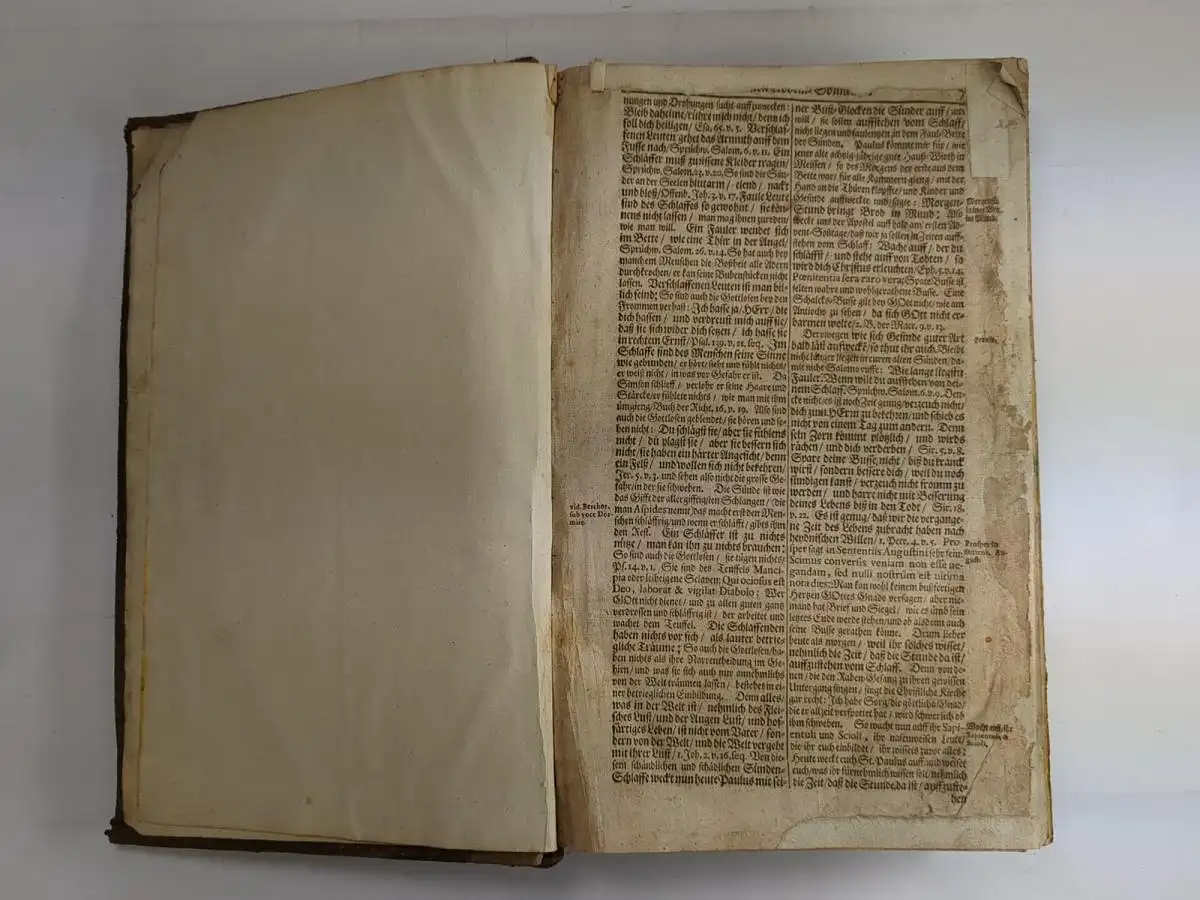 nungen und Drohungen sacht auffzuwecken:
Bleib daheime/ rühre mich nicht/ denn ich
soll dich heiligen/ Esa. 65. v. 5. Verschlaf-
fenen Leuten gehet das Armuth auff dem
Fusse nach/ Sprüchw. Salom. 6. v. 11. Ein
Schläffer muß zurissene Kleider tragen/
Sprüchw. Salom. 23. v. 20. So sind die Sün-
der an der Seelen blutarm/ elend/ nackt
und bloß/ Offenb. Joh. 3. v. 17. Faule Leute
sind des Schlaffes so gewohnt/ sie kön-
nens nicht lassen/ man mag ihnen zureden/
wie man will. Ein Fauler wendet sich
im Bette/ wie eine Thür in der Angel/
Sprüchw. Salom. 26. v. 14. So hat auch bey
manchem Menschen die Boßheit alle Adern
durchkrochen/ er kan seine Bubenstücken nicht
lassen. Verschlaffenen Leuten ist man bil-
lich feind; So sind auch die Gottlosen bey den
Frommen verhast: Ich hasse ja/ HErr/ die
dich hassen/ und verdreust mich auff sie/
daß sie sich wider dich setzen/ ich hasse sie
in rechtem Ernst/ Psal. 139. v. 21. seq. Im
Schlaffe sind des Menschen seine Sinne
wie gebunden/ er hört/ sieht und fühlt nichts/
er weiß nicht/ in was vor Gefahr er ist. Da
Simson schlieff/ verlohr er seine Haare und
Stärcke/ er fühlete nichts/ wie man mit ihm
ümgieng/ Buch der Richt. 16. v. 19. Also sind
auch die Gottlosen geblendet/ sie hören und se-
hen nicht: Du schlägst sie/ aber sie fühlens
nicht/ du plagst sie/ aber sie bessern sich
nicht/ sie haben ein härter Angesicht/ denn
ein Felß/ und wollen sich nicht bekehren/
Jer. 5. v. 3. und sehen also nicht die grosse Ge-
fahr/ in der sie schweben. Die Sünde ist wie
das Gifft der allergifftigsten Schlangen/ (die
man Aspides nennt) das macht erst den Men-
schen schläffrig/ und wenn er schläfft/ gibts ihm
den Rest. Ein Schläffer ist zu nichts
nütze/ man kan ihn zu nichts brauchen;
So sind auch die Gottlosen/ sie tügen nichts/
Ps. 14. v. 1. Sie sind des Teuffels Manci-
pia oder leibeigene Sclaven: Qui ociosus est
Deo, laborat & vigilat Diabolo; Wer
GOtt nicht dienet/ und zu allen guten gantz
verdrossen und schläffrig ist/ der arbeitet und
wachet dem Teuffel. Die Schlaffenden
haben nichts vor sich/ als lauter betrieg-
gliche Träume; So auch die Gottlosen/ ha-
ben nichts als ihre Narrentheidung im Ge-
hirn/ und was sie sich auch nur annehmlichs
von der Welt träumen lassen/ bestehet in ei-
ner betrieglichen Einbildung. Denn alles/
was in der Welt ist/ nehmlich des Flei-
sches Lust/ und der Augen Lust/ und hof-
färtiges Leben/ ist nicht vom Vater/ son-
dern von der Welt/ und die Welt vergeht
mit ihrer Lust/ 1. Joh. 2. v. 16. seq. Von die-
sem schändlichen und schädlichen Sünden-
Schlaffe weckt nun heute Paulus mit sei-
vid. Bercbor.
sub voce Dor-
mire.
ner Buß-Glocken die Sünder auff/ und
will/ sie sollen auffstehen vom Schlaff/
nicht liegen und faulentzen in dem Faul-Bette
der Sünden. Paulus kömmt mir für/ wie
jener alte achtzig-jährige gute Hauß-Wirth in
Meissen/ so des Morgens der erste aus dem
Bette war/ für alle Kammern gieng/ mit der
Hand an die Thüren klopffte/ und Kinder und
Gesinde auffweckte und sagte: Morgen-
Stund bringt Brod in Mund; Also
weckt uns der Apostel auff bald am ersten Ad-
vent-Sontage/ daß wir ja sollen in Zeiten auff-
stehen vom Schlaff: Wache auff/ der du
schläffst/ und stehe auff von Todten/ so
wird dich Christus erleuchten/ Eph. 5. v. 14.
Pœnitentia sera raro vera; Späte Busse ist
selten wahre und wohlgerathene Busse. Eine
Schalcks-Busse gilt bey GOtt nicht/ wie am
Antiocho zu sehen/ da sich GOtt nicht er-
barmen wolte/ 2. B. der Macc. 9. v. 13.
Derowegen wie sich Gesinde guter Art
bald läst auffwecke/ so thut ihr auch. Bleibt
nicht länger liegen in euren alten Sünden/ da-
mit nicht Salomo ruffe: Wie lange liegstu
Fauler? Wenn wilt du auffstehen von dei-
nem Schlaff/ Sprüchw. Salom. 6. v. 9. Den-
cke nicht/ es ist noch Zeit genug/ verzeuch nicht/
dich zum HErrn zu bekehren/ und schieb es
nicht von einem Tag zum andern. Denn
sein Zorn kömmt plötzlich/ und wirds
rächen/ und dich verderben/ Sir. 5. v. 8.
Spare deine Busse nicht/ biß du kranck
wirst/ sondern bessere dich/ weil du noch
sündigen kanst/ verzeuch nicht fromm zu
werden/ und harre nicht mit Besserung
deines Lebens biß in den Todt/ Sir. 18.
v. 22. Es ist genug/ daß wir die vergange-
ne Zeit des Lebens zubracht haben nach
heydnischen Willen/ 1. Petr. 4. v. 5. Pro-
sper sagt in Sententiis Augustini sehr fein:
Scimus conversis veniam non esse ne-
gandam, sed nulli nostrûm est ultima
nota dies: Man kan wohl keinem bußfertigen
Hertzen GOttes Gnade versagen/ aber nie-
mand hat Brief und Siegel/ wie es ümb sein
letztes Ende werde stehen/ und ob alsdenn auch
seine Busse gerathen könne. Drum lieber
heute als morgen/ weil ihr solches wisset/
nehmlich die Zeit/ daß die Stunde da ist/
auffzustehen vom Schlaff. Denn von de-
nen/ die den Raben-Gesang zu ihren gewissen
Untergang singen/ singt die Christliche Kirche
gar recht: Ich habe Sorg/ die göttliche Gnad/
die er allzeit verspottet hat/ wird schwerlich ob
ihm schweben. So wacht nun auff ihr Sapi-
entuli und Scioli, ihr naseweisen Leute/
die ihr euch einbildet/ ihr wissets zuvor alles;
Heute weckt euch St. Paulus auff/ und weiset
euch/ was ihr fürnehmlich wissen solt/ nehmlich
die Zeit/ daß die Stunde da ist/ auffzuste-
hen
Prosper in
Sentent. Au-
gust.
Wacht auff/ ihr
Sapientuli &
Scioli.